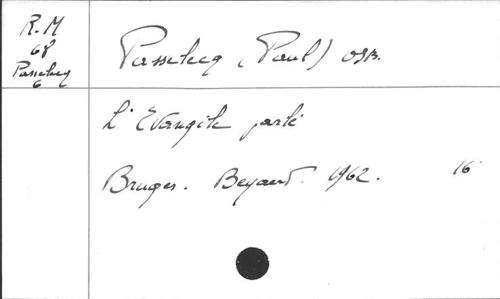 R.M
68
Passelecq
6
Passelecq (Paul) OSB.
L'Evangile parlé
Bruges. Beyaert. 1962. 16